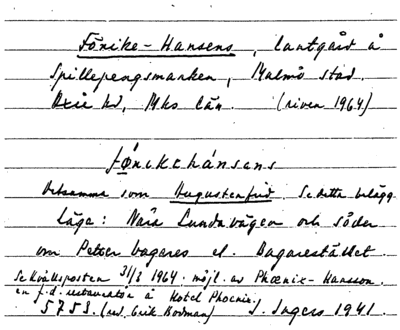 Fönike-Hansens, lantgård å
Spillepengsmarken, Malmö stad.
Oxie hd, Mhs län. (riven 1964)
fø̀nikehánsens
Detsamma som Augustenfrid. Se detta belägg
Läge: Nära Lundavägen och söder
om Petter bagares el. Bagarestället.
Se Kvällsposten 31/8 1964. möjl. av Phœnix-Hansson.
en f.d. restauratör å Hotel Phoenix.
5753. (us. Erik Rodman) I. Ingers 1941.